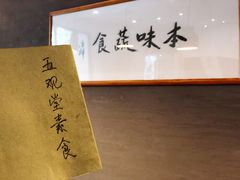 食蔬味本
五观堂素食